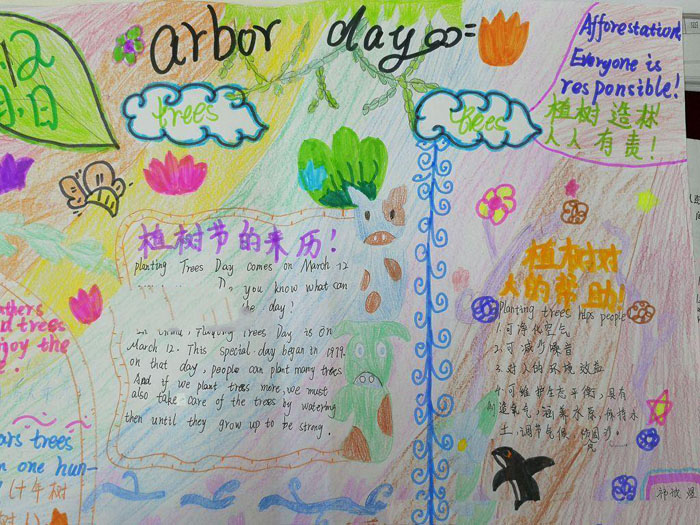 arbor day
12
日
trees
trees
Afforestation,
Everyone is
responsible!
植树造林
人人有责!
植树节的来历!
planting Trees Day comes on March 12
you know what can
the day!
China, Planting Trees Day is on
March 12. This special day began in 1979.
on that day, people can plant many trees
And if we plant trees more, we must
also take care of the trees by watering
then until they grow up to be strong.
植树对
人的帮助!
Planting trees helps people
1.可净化空气
2.可减少噪音
3.对人的环境效益
4.可维护生态平衡,具有
造氧气,涵养水原,保持水
土,调节气候
trees
joy the
trees
n one hun-
(十年树